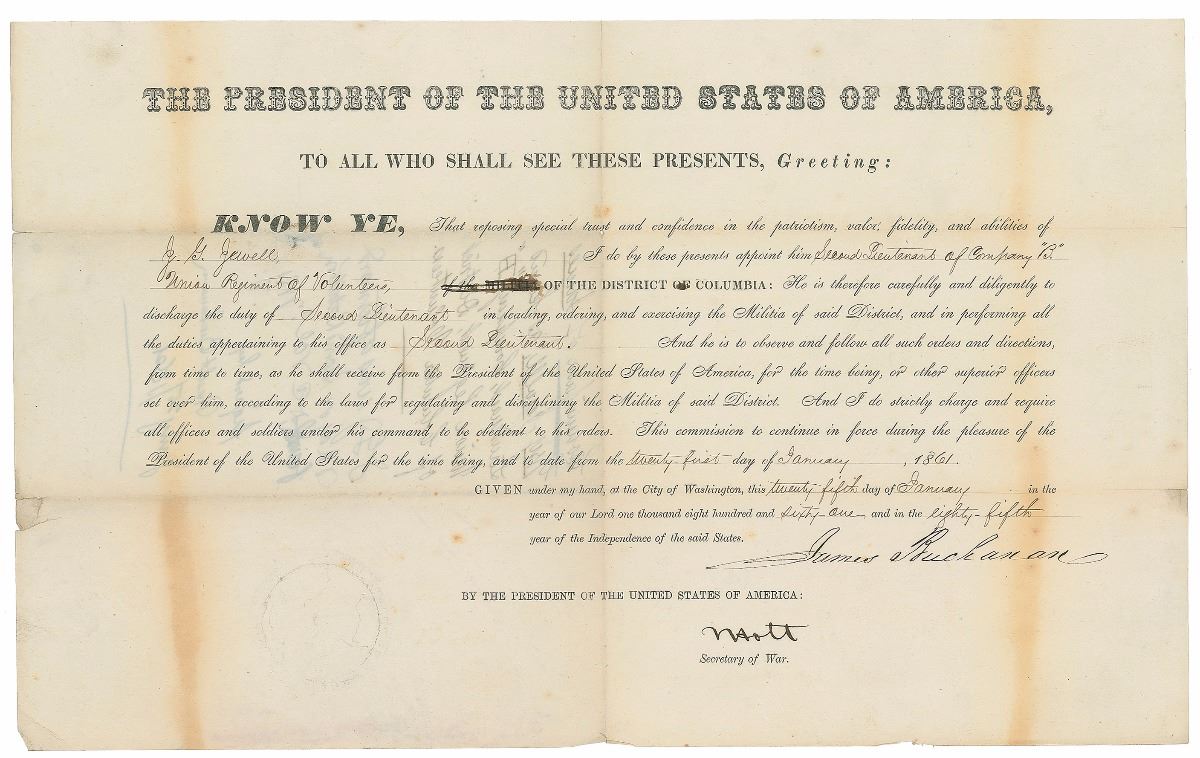 THE PRESIDENT OF THE UNITED STATES OF AMERICA,
TO ALL WHO SHALL SEE THESE PRESENTS, Greeting:
KNOW YE, That reposing special trust and confidence in the patriotism, valor, fidelity, and abilities of
J. G. Jewell, I do by these presents appoint him Second Lieutenant of Company "B"
Union Regiment of Volunteers of the MILITIA OF THE DISTRICT OF COLUMBIA: He is therefore carefully and diligently to
discharge the duty of Second Lieutenant in leading, ordering, and exercising the Militia of said District, and in performing all
the duties appertaining to his office as Second Lieutenant. And he is to observe and follow all such orders and directions,
from time to time, as he shall receive from the President of the United States of America, for the time being, or other superior officers
set over him, according to the laws for regulating and disciplining the Militia of said District. And I do strictly charge and require
all officers and soldiers under his command to be obedient to his orders. This commission to continue in force during the pleasure of the
President of the United States for the time being, and to date from the twenty first day of January, 1861.
GIVEN under my hand, at the City of Washington, this twenty fifth day of January in the
year of our Lord one thousand eight hundred and sixty-one and in the eighty-fifth
year of the Independence of the said States.
James Buchanan
BY THE PRESIDENT OF THE UNITED STATES OF AMERICA:
J Holt
Secretary of War.